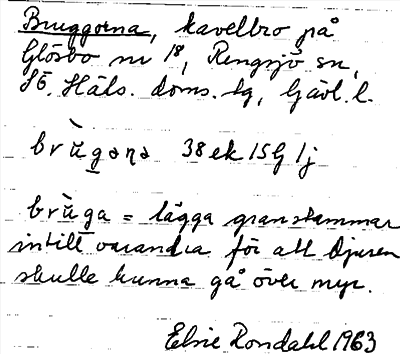 Bruggorna, kavelbro på
Glösbo nr 18, Rengsjö sn,
Sö. Häls. doms. lg, Gävl. l.
brùgəṇə 38 ek 15G 1j
brùga = lägga granstammar
intill varandra för att djuren
skulle kunna gå över myr.
Elvie Rondahl 1963